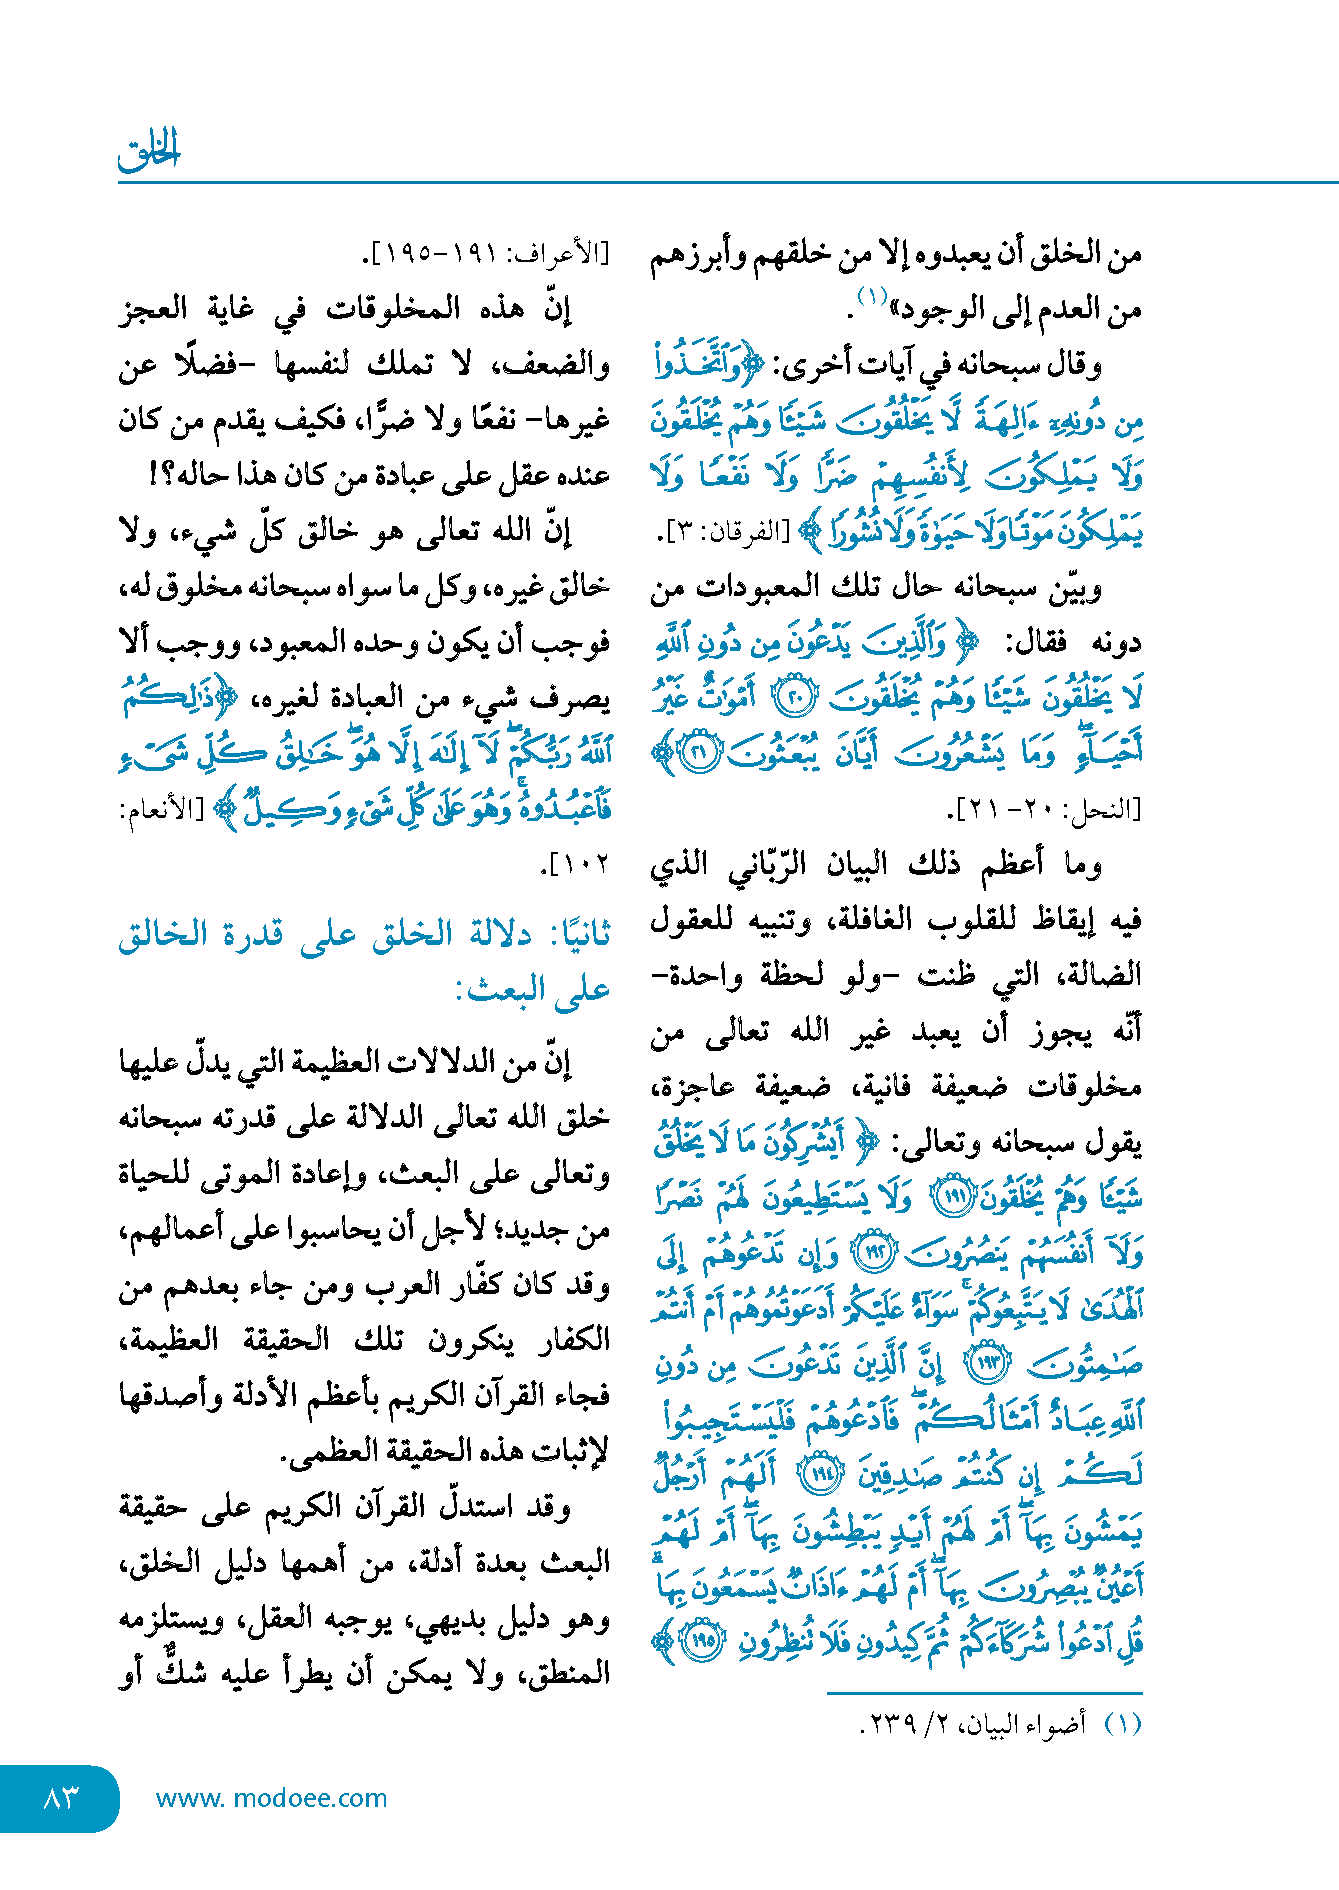 الخلق
من الخلق أن يعبدوه إلا من خلقهم وأبرزهم
من العدم إلى الوجود»(١).
وقال سبحانه في آيات أخرى: ﴿وَٱتَّخَذُوا۟
مِن دُونِهِۦٓ ءَالِهَةً لَّا يَخْلُقُونَ شَيْـًٔا وَهُمْ يُخْلَقُونَ
وَلَا يَمْلِكُونَ لِأَنفُسِهِمْ ضَرًّا وَلَا نَفْعًا وَلَا
يَمْلِكُونَ مَوْتًا وَلَا حَيَوٰةً وَلَا نُشُورًا﴾ [الفرقان: ٣].
وبيّن سبحانه حال تلك المعبودات من
دونه فقال: ﴿وَٱلَّذِينَ يَدْعُونَ مِن دُونِ ٱللَّهِ
لَا يَخْلُقُونَ شَيْـًٔا وَهُمْ يُخْلَقُونَ ۝٢٠ أَمْوَٰتٌ غَيْرُ
أَحْيَآءٍ ۖ وَمَا يَشْعُرُونَ أَيَّانَ يُبْعَثُونَ ۝٢١﴾
[النحل: ٢٠- ٢١].
وما أعظم ذلك البيان الرّبّاني الذي
فيه إيقاظ للقلوب الغافلة، وتنبيه للعقول
الضالة، التي ظنت -ولو لحظة واحدة-
أنّه يجوز أن يعبد غير الله تعالى من
مخلوقات ضعيفة فانية، ضعيفة عاجزة،
يقول سبحانه وتعالى: ﴿أَيُشْرِكُونَ مَا لَا يَخْلُقُ
شَيْـًٔا وَهُمْ يُخْلَقُونَ ۝١٩١ وَلَا يَسْتَطِيعُونَ لَهُمْ نَصْرًا
وَلَآ أَنفُسَهُمْ يَنصُرُونَ ۝١٩٢ وَإِن تَدْعُوهُمْ إِلَى
ٱلْهُدَىٰ لَا يَتَّبِعُوكُمْ ۚ سَوَآءٌ عَلَيْكُمْ أَدَعَوْتُمُوهُمْ أَمْ أَنتُمْ
صَٰمِتُونَ ۝١٩٣ إِنَّ ٱلَّذِينَ تَدْعُونَ مِن دُونِ
ٱللَّهِ عِبَادٌ أَمْثَالُكُمْ ۖ فَٱدْعُوهُمْ فَلْيَسْتَجِيبُوا۟
لَكُمْ إِن كُنتُمْ صَٰدِقِينَ ۝١٩٤ أَلَهُمْ أَرْجُلٌ
يَمْشُونَ بِهَآ ۖ أَمْ لَهُمْ أَيْدٍ يَبْطِشُونَ بِهَآ ۖ أَمْ لَهُمْ
أَعْيُنٌ يُبْصِرُونَ بِهَآ ۖ أَمْ لَهُمْ ءَاذَانٌ يَسْمَعُونَ بِهَا ۗ
قُلِ ٱدْعُوا۟ شُرَكَآءَكُمْ ثُمَّ كِيدُونِ فَلَا تُنظِرُونِ ۝١٩٥﴾
(١) أضواء البيان، ٢/ ٢٣٩.
[الأعراف: ١٩١-١٩٥].
إنّ هذه المخلوقات في غاية العجز
والضعف، لا تملك لنفسها -فضلًا عن
غيرها- نفعًا ولا ضرًّا، فكيف يقدم من كان
عنده عقل على عبادة من كان هذا حاله؟!
إنّ الله تعالى هو خالق كلّ شيء، ولا
خالق غيره، وكل ما سواه سبحانه مخلوق له،
فوجب أن يكون وحده المعبود، ووجب ألا
يصرف شيء من العبادة لغيره، ﴿ذَٰلِكُمُ
ٱللَّهُ رَبُّكُمْ ۖ لَآ إِلَٰهَ إِلَّا هُوَ ۖ خَٰلِقُ كُلِّ شَىْءٍ
فَٱعْبُدُوهُ ۚ وَهُوَ عَلَىٰ كُلِّ شَىْءٍ وَكِيلٌ﴾ [الأنعام:
١٠٢].
ثانيًا: دلالة الخلق على قدرة الخالق
على البعث:
إنّ من الدلالات العظيمة التي يدلّ عليها
خلق الله تعالى الدلالة على قدرته سبحانه
وتعالى على البعث، وإعادة الموتى للحياة
من جديد؛ لأجل أن يحاسبوا على أعمالهم،
وقد كان كفّار العرب ومن جاء بعدهم من
الكفار ينكرون تلك الحقيقة العظيمة،
فجاء القرآن الكريم بأعظم الأدلة وأصدقها
لإثبات هذه الحقيقة العظمى.
وقد استدلّ القرآن الكريم على حقيقة
البعث بعدة أدلة، من أهمها دليل الخلق،
وهو دليل بدهي، يوجبه العقل، ويستلزمه
المنطق، ولا يمكن أن يطرأ عليه شكٌّ أو
www. modoee.com
٨٣